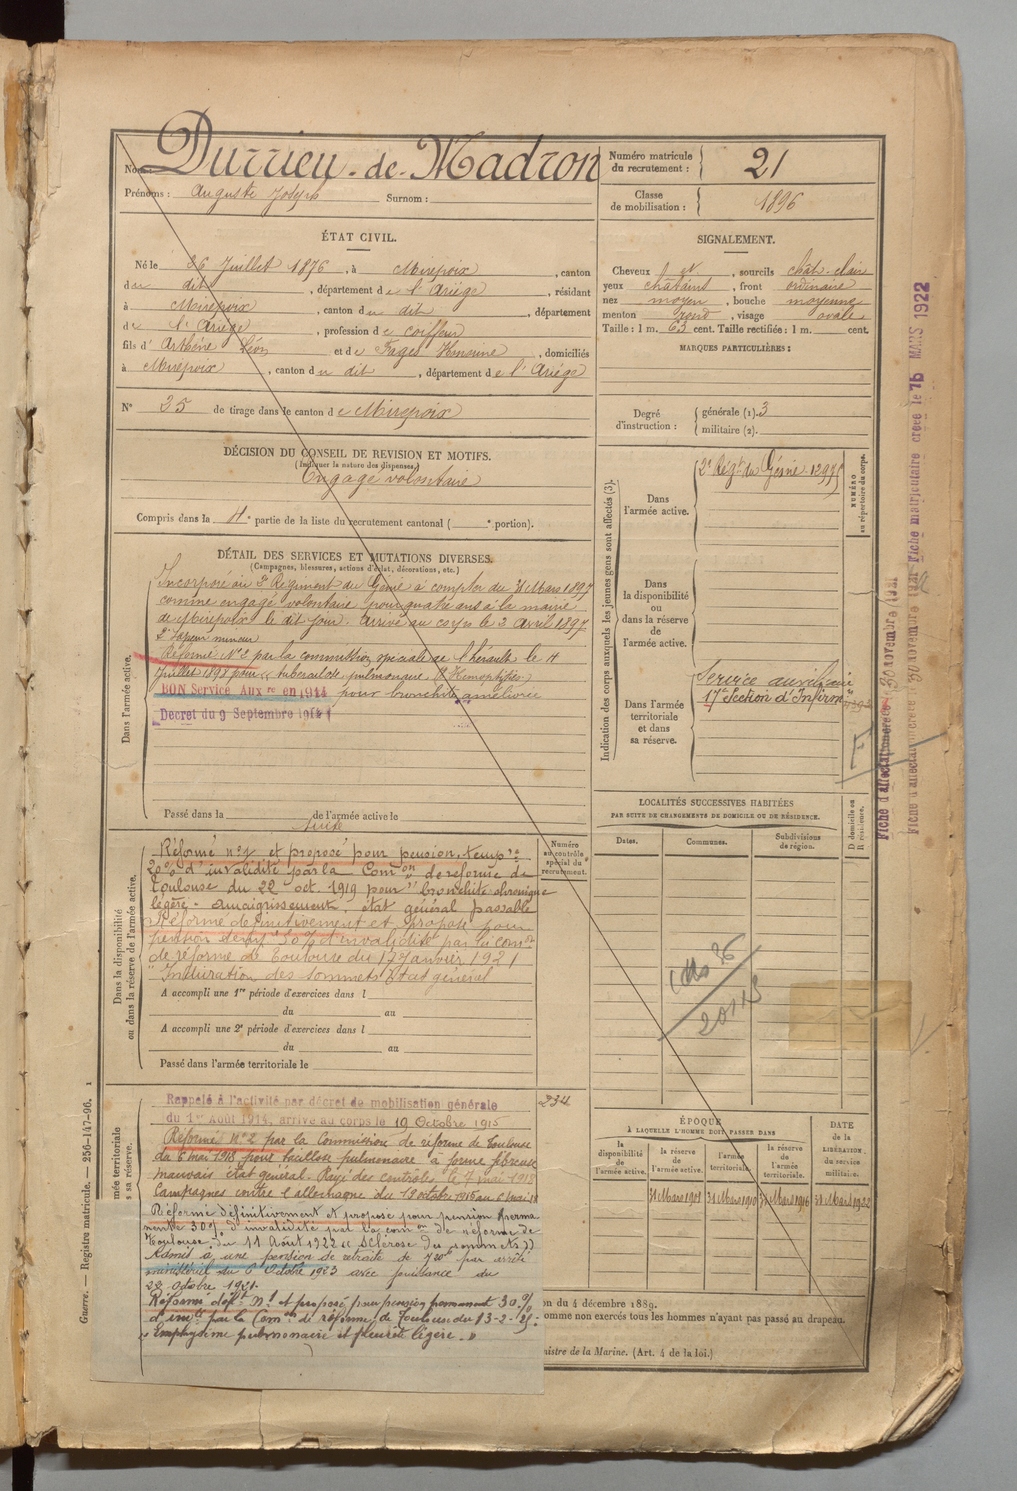 Nom : Durrieu-de-Madron
Prénoms : Auguste Joseph Surnom :
Numéro matricule du recrutement : 21
Classe de mobilisation : 1896
ÉTAT CIVIL.
Né le 26 Juillet 1876, à Mirepoix, canton
du dit, département de l'Ariège, résidant
à Mirepoix, canton du dit, département
de l'Ariège, profession de coiffeur
fils d'Arthène Léon et de Fages, domiciliés
à Mirepoix, canton du dit, département de l'Ariège
N° 25 de tirage dans le canton de Mirepoix
SIGNALEMENT.
Cheveux, sourcils chât. clair
yeux châtains, front ordinaire
nez moyen, bouche moyenne
menton rond, visage ovale
Taille : 1 m. 63 cent. Taille rectifiée : 1 m. cent.
MARQUES PARTICULIÈRES :
Degré d'instruction : générale (1). 3
militaire (2).
DÉCISION DU CONSEIL DE REVISION ET MOTIFS.
(Indiquer la nature des dispenses.)
Engagé volontaire
Compris dans la 4e partie de la liste du recrutement cantonal ( e portion).
DÉTAIL DES SERVICES ET MUTATIONS DIVERSES.
(Campagnes, blessures, actions d'éclat, décorations, etc.)
Dans l'armée active.
Incorporé au 2e Régiment du Génie à compter du 31 Mars 1897
comme engagé volontaire pour quatre ans à la mairie
de Mirepoix le dit jour. Arrivé au corps le 2 Avril 1897
2e Sapeur mineur
Réformé N°2 par la commission spéciale de l'Hérault le
Juillet 1898 pour "tuberculose pulmonaire
BON Service Auxre en 1914 pour bronchite améliorée
Décret du 9 Septembre 1914
Passé dans la de l'armée active le
Suite
Dans la disponibilité ou dans la réserve de l'armée active.
Réformé n°1 et proposé pour pension tempre
20% d'invalidité par la Comon de réforme de
Toulouse du 22 oct. 1919 pour "bronchite chronique
légère - amaigrissement, état général passable
Réformé définitivement et proposé pour
pension 30% d'invalidité par la comon
de réforme de Toulouse du 17 Janvier 1921
"Induration des sommets Etat général
A accompli une 1re période d'exercices dans l
du au
A accompli une 2e période d'exercices dans l
du au
Passé dans l'armée territoriale le
Numéro au contrôle spécial du recrutement.
234
Rappelé à l'activité par décret de mobilisation générale
du 1er Août 1914, arrivé au corps le 19 Octobre 1915
Réformé N°2 par la Commission de réforme de Toulouse
du 6 mai 1918 pour bacillose pulmonaire à forme fibreuse
mauvais état général. Rayé des contrôles le 7 mai 1918
Campagnes contre l'allemagne du octobre 1915 au 6 mai 18
Réformé définitivement et proposé pour pension perma
nente 30% d'invalidité par la comon de réforme de
Toulouse du 11 Août 1922 "Sclérose des sommets"
Admis à une pension de retraite de 720f par arrêté
ministériel du 6 Octobre 1923 avec jouissance du
22 Octobre 1921.
Réformé déft N°1 et proposé pour pension permanente 30%
d'invté par la Comon de réforme de Toulouse du 13-2-25:
"Emphysème pulmonaire et pleurite légère."
Indication des corps auxquels les jeunes gens sont affectés (3).
NUMÉRO au répertoire du corps.
Dans l'armée active.
2e Régt du Génie
Dans la disponibilité ou dans la réserve de l'armée active.
Dans l'armée territoriale et dans sa réserve.
Service auxiliaire
17e Section d'Infirm
LOCALITÉS SUCCESSIVES HABITÉES
PAR SUITE DE CHANGEMENTS DE DOMICILE OU DE RÉSIDENCE.
Dates. Communes. Subdivisions de région. D domicile ou R résidence.
ÉPOQUE
À LAQUELLE L'HOMME DOIT PASSER DANS
la disponibilité de l'armée active.
la réserve de l'armée active.
l'armée territoriale.
la réserve de l'armée territoriale.
DATE de la LIBÉRATION du service militaire.
31 Mars 1901 31 Mars 1910 31 Mars 1916 31 Mars 1922
on du 4 décembre 1889.
omme non exercés tous les hommes n'ayant pas passé au drapeau.
nistre de la Marine. (Art. 4 de la loi.)
Guerre. — Registre matricule. — 256-147-96.
Fiche matriculaire créée le 15 MARS 1922
Fiche d'affectation créée le 30 novembre 1921